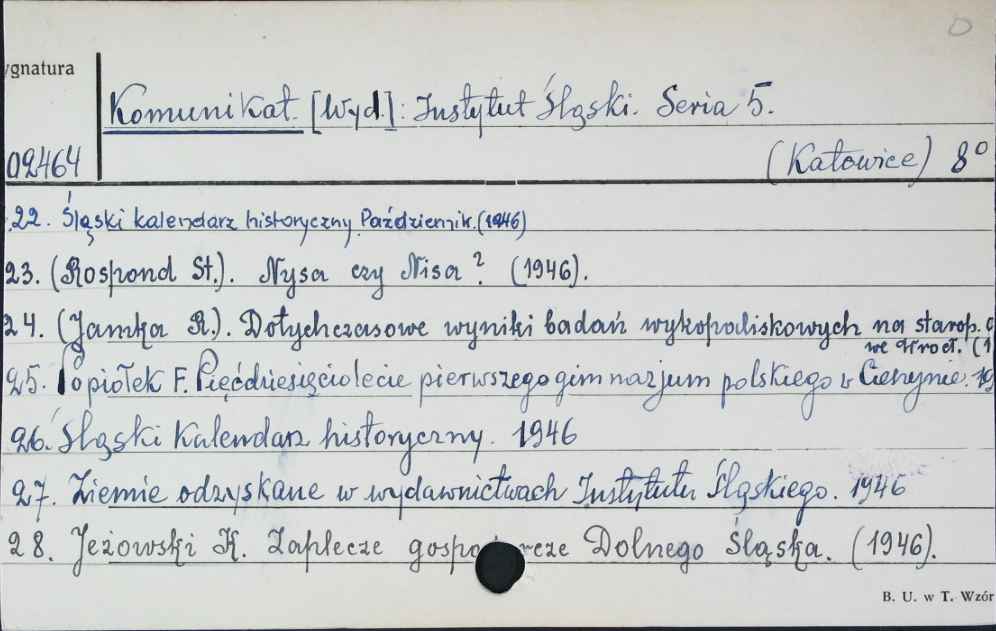 ygnatura
Komunikat. [Wyd.]: Instytut Śląski. Seria 5.
02464 (Katowice) 8°
22. Śląski kalendarz historyczny Październik. (1946)
23. (Rospond St.). Nysa czy Nisa? (1946).
24. (Jamka R.). Dotychczasowe wyniki badań wykopaliskowych na starop.
we Wrocł. (1
25. Popiołek F. Pięćdziesięciolecie pierwszego gimnazjum polskiego w Cieszynie. 19
26. Śląski Kalendarz historyczny. 1946
27. Ziemie odzyskane w wydawnictwach Instytutu Śląskiego. 1946
28. Jeżowski K. Zaplecze gospo rcze Dolnego Śląska. (1946).
B. U. w T. Wzór